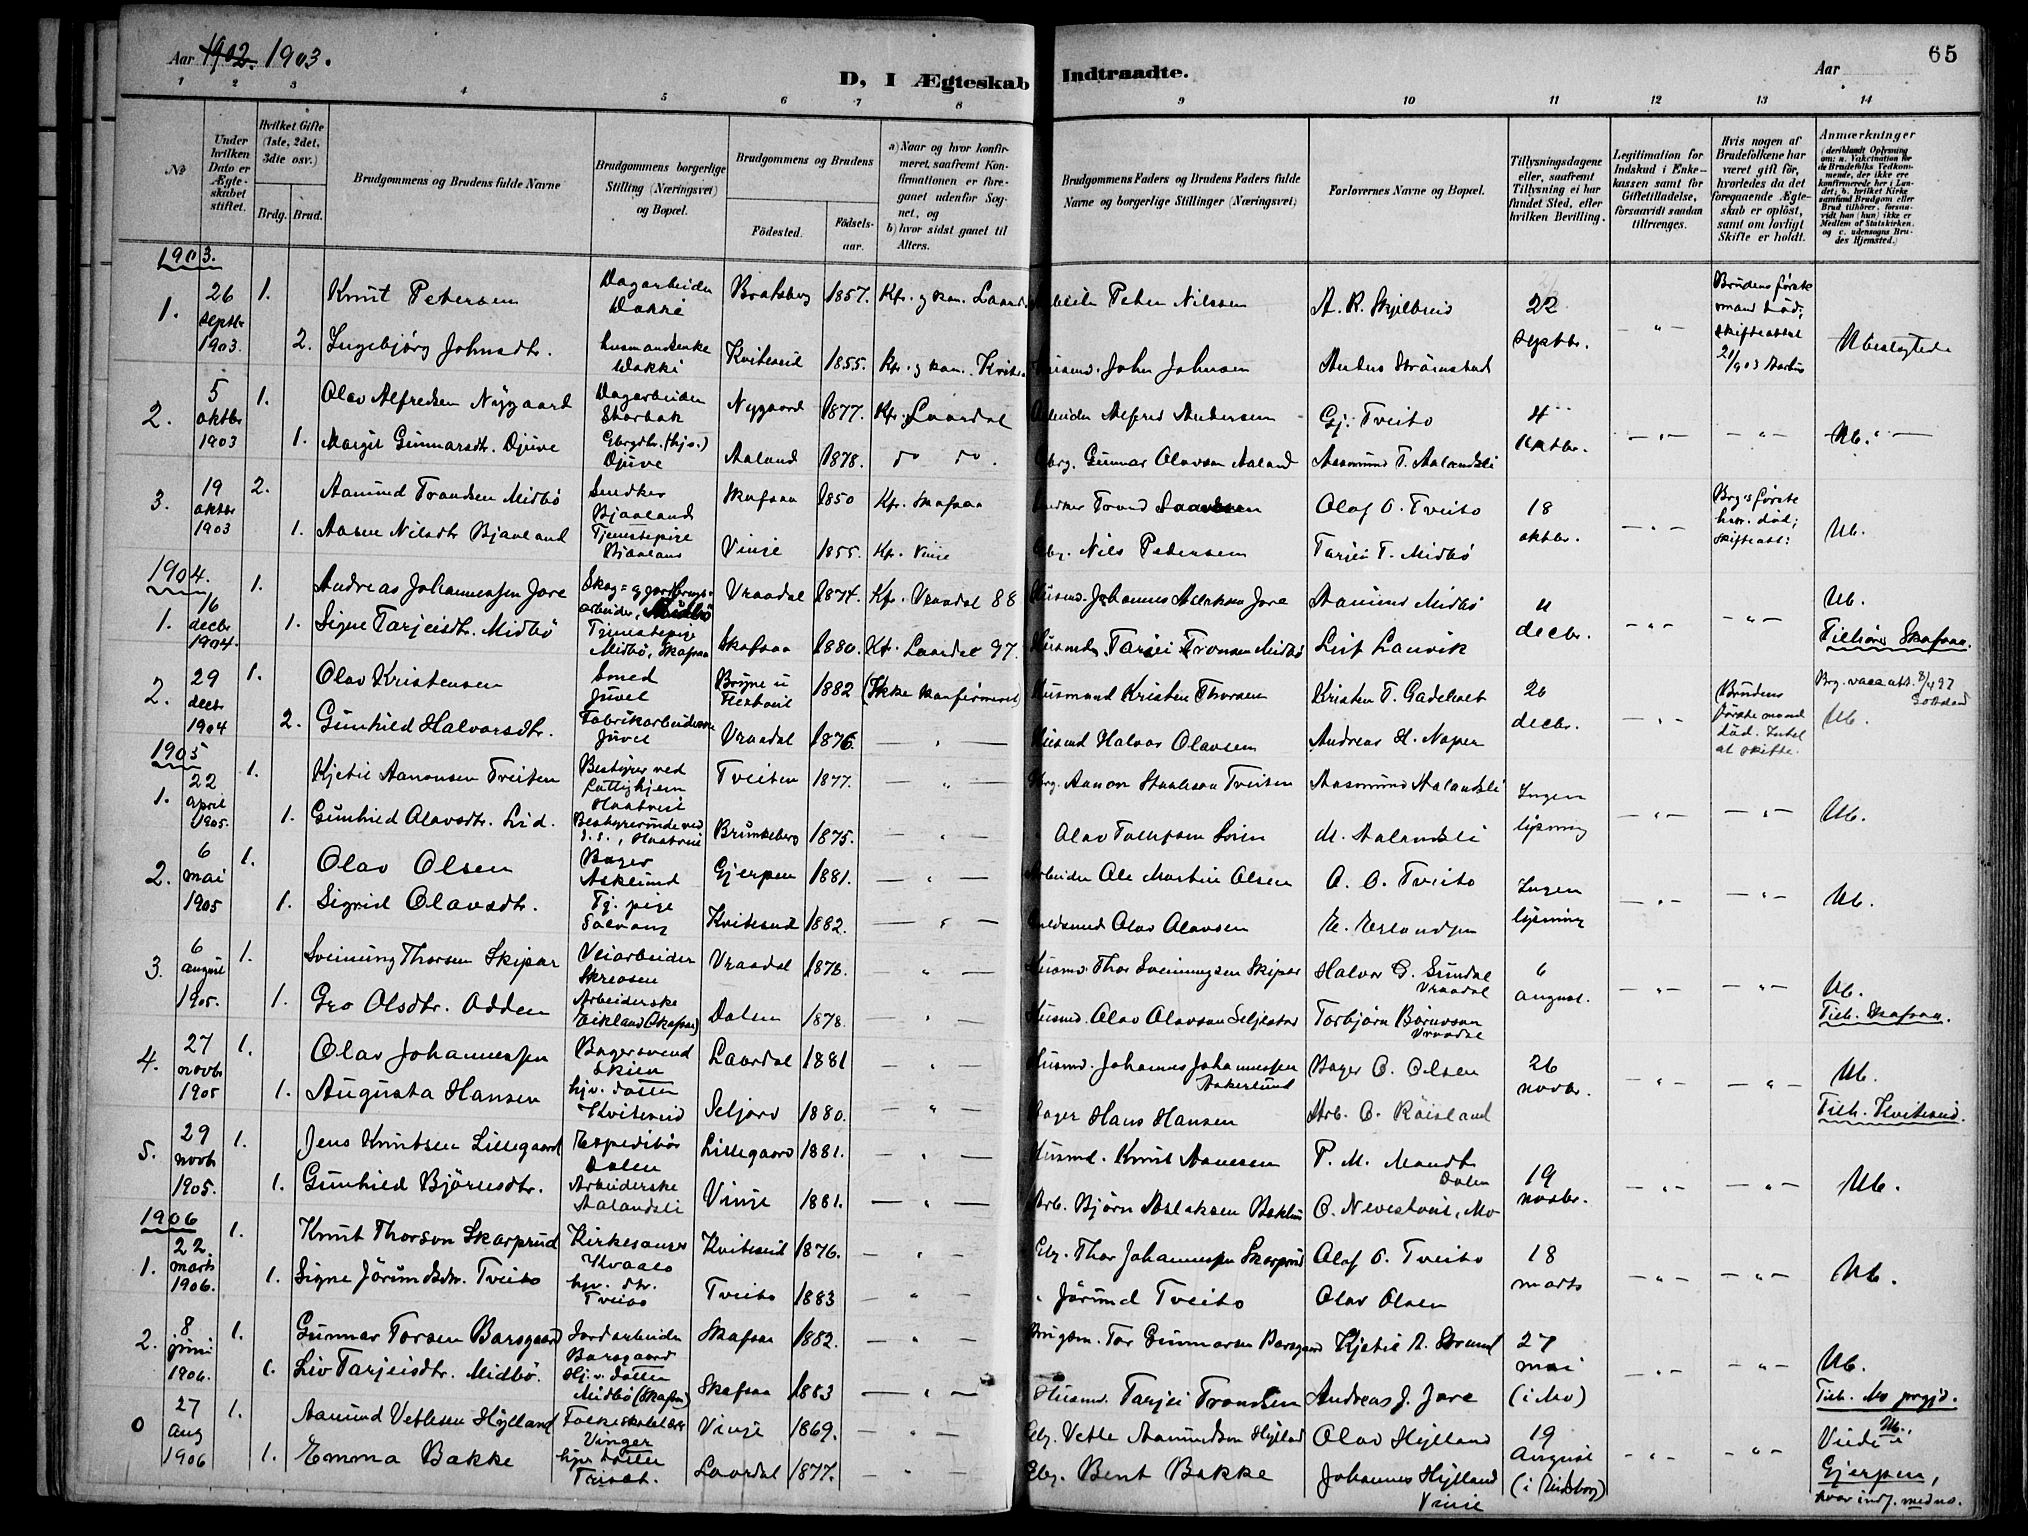 Aar 1902. 1903.
D, I Ægteskab Indtraadte.
Aar
65
1 2 3 4 5 6 7 8 9 10 11 12 13 14
No
Under hvilken Dato er Ægteskabet stiftet.
Hvilket Gifte (1ste, 2det, 3die osv.)
Brdg. Brud.
Brudgommens og Brudens fulde Navne
Brudgommens borgerlige Stilling (Næringsvei) og Bopæl.
Brudgommens og Brudens
Fødested. Fødselsaar.
a) Naar og hvor konfirmeret, saafremt Konfirmationen er foregaaet udenfor Sognet, og
b) hvor sidst gaaet til Alters.
Brudgommens Faders og Brudens Faders fulde Navne og borgerlige Stillinger (Næringsvei)
Forlovernes Navne og Bopæl.
Tillysningsdagene eller, saafremt Tillysning ei har fundet Sted, efter hvilken Bevilling.
Legitimation for Indskud i Enkekassen samt for Giftetilladelse, forsaavidt saadan tiltrænges.
Hvis nogen af Brudefolkene har været gift før, hvorledes da det foregaaende Ægteskab er opløst, samt om lovligt Skifte er holdt.
Anmærkninger
(deriblandt Oplysning om: a. Vakcination for de Brudefolks Vedkommende, der ikke ere konfirmerede her i Landet; b. hvilket Kirkesamfund Brudgom eller Brud tilhører, forsaavidt han (hun) ikke er Medlem af Statskirken, og c. udensogns Brudes Hjemsted.)
1903.
1. 26 septbr 1903. 1. Knut Petersen Dagarbeider Dokki Bratsberg 1857. Kfr. g kom. Laard. Peter Nilssen A. R. Skjelbreid 22 septbr. - " - Brudens første mand død; skifteattest
2. Ingebjørg Johnsdtr. husmandsenke Dokki Kviteseid 1855. Kfr. g kom. Kvites. Husmd. John Johnsen Anders Strömstad Ubeslegtede
2. 5 oktbr 1903 1. Olav Alfredsen Nygaard Dagarbeider Storbak Nygaard 1877. Kfr. Laardal Arbeider Alfred Andersen Gj. Tveito 4 oktbr. - " - - " - Ub.
1. Margit Gunnarsdtr. Djuve Gbrgdtr. (hjv.) Djuve Aaland 1878. do do. Gbrg. Gunnar Olavson Aaland Aasmund T. Aalandsli
3. 19 oktbr 1903 2. Aamund Trondsen Midbö Snedker Bjaaland Skafsaa 1850 Kfr. Skafsaa Snedker Trond Olaf O. Tveito 18 oktbr. - " - Brg.s første hus. død; skifteatt: Ub.
1. Aasne Nilsdtr Bjaaland Tjenestepige Bjaaland Vinje 1855. Kfr. Vinje Gbg. Nils Petersen Tarjei T. Midbö
1904.
1. 16 decbr 1904. 1. Andreas Johannessen Jore Skog= g jordbrugsarbeider, Midbö Vraadal 1874. Kfr. Vraadal 88 Husmd. Johannes Aslaksen Jore Aamund Midbö 11 decbr. - " - - " - Ub.
1. Signe Tarjeisdtr. Midbö Tjenestepige Midbö, Skafsaa Skafsaa 1880. Kfr. Laardal 97. Husmd. Tarjei Tronsen Midbö Leif Lauvik Tilhører Skafsaa.
2. 29 decbr 1904 1. Olav Kristensen Smed Juvel 1882 (Ikke konfirmeret) Husmand Kristen Thorsen Kristen T. Gadelset 26 decbr. - " - Brudens første mand død. Intet at skifte. Brg. vacc. att. 8/4 97
2. Gunhild Halvorsdtr. Fabrikarbeiderske Juvel Vraadal 1876. - " - Husmd Halvor Olavsen Andreas H. Noper Ub.
1905
1. 22 april 1905. 1. Kjetil Aanonsen Tveiten Bestyrer ved Fattighjem Haatveit Tveiten 1877. - " - Gbrg. Aanon Tveiten Aasmund Aalandsli Ingen lysning - " - - " - Ub.
1. Gunhild Olavsdtr. Lid. Bestyrerinde ved Haatveit Brunkeberg 1875. - " - Olav M. Aalandsli
2. 6 mai 1905 1. Olav Olsen Bager Asklund Gjerpen 1881. - " - Arbeider Ole Martin Olsen O. O. Tveito Ingen lysning - " - - " - Ub.
1. Sigrid Olavsdtr. Tj. pige Solvang Kviteseid 1882. - " - Guldsmed Olav Olavsen E. Erlandsen
3. 6 august 1905. 1. Sveinung Thorsen Skipar Veiarbeider Skreosen Vraadal 1876. " - Husmd. Thor Sveinungsen Skipar Halvor G. Sundal Vraadal 6 august. - " - - " - Ub.
1. Gro Olsdtr. Odden Arbeiderske Eikland (Skafsaa) Dalen 1878. - " - Husmd. Olav Olavson Torbjørn Bjørnson Vraadal Tilh. Skafsaa.
4. 27 novbr 1905 1. Olav Johannessen Bagersvend Skien Laardal 1881 - " - Husmd. Johannes Johannessen Aakerlund Bager O. Olsen 26 novbr. - " - - " - Ub.
1. Augusta Hansen hjv. datter Kviteseid Seljord 1880. - " - Bager Hans Hansen Arb. O. Röisland Tilh. Kviteseid.
5. 29 novbr 1905. 1. Jens Knutsen Lillegaard Expeditör Dalen Lillegaard 1881. - " - Husmd. Knut Aanesen P. M. Mandt Dalen 19 novbr. - " - - " - Ub.
1. Gunhild Björnsdtr. Arbeiderske Aalandsli Vinje 1881. - " - Arb. Bjørn Aslaksen O. Nevestveit, Mo
1906
1. 22. marts 1906. 1. Knut Thorson Skarprud Kirkesanger Kvaale Kviteseid 1876. - " - Gbg. Thor Johannessen Skarprud Olaf O. Tveito 18 marts - " - - " - Ub.
1. Signe Jörundsdtr. Tveito hjv. dtr. Tveito Tveito 1883 - " - " Jörund Tveito Olav Olsen
2. 8 juni 1906. 1. Gunnar Torsen Barsgaard Jordarbeider Barsgaard Skafsaa 1882. - " - Brugsm. Tor Gunnarsen Barsgaard Kjetil A. Strand 27 mai (i Mo) - " - - " - Ub.
1. Liv Tarjeisdtr. Midbö. Hj. v. datter Midbö (Skafsaa) Skafsaa 1883 - " - Husmd. Tarjei Trondsen Andreas J. Jore Tilh. Mo prgjd.
0 27 aug 1906 1. Aamund Vetlesen Hylland Folkeskolelærer Vinger Vinje 1869. - " - Gbg. Vetle Aamundsen Hylland Olav Hylland 19 August (i Eidsborg) - " - - " - Ub. Viede i Gjerpen, hvor indf. med no.
1. Emma Bakke hjv. datter Trisæt. Laardal 1877. - " - Gbg. Bent Bakke Johannes Hylland Vinje